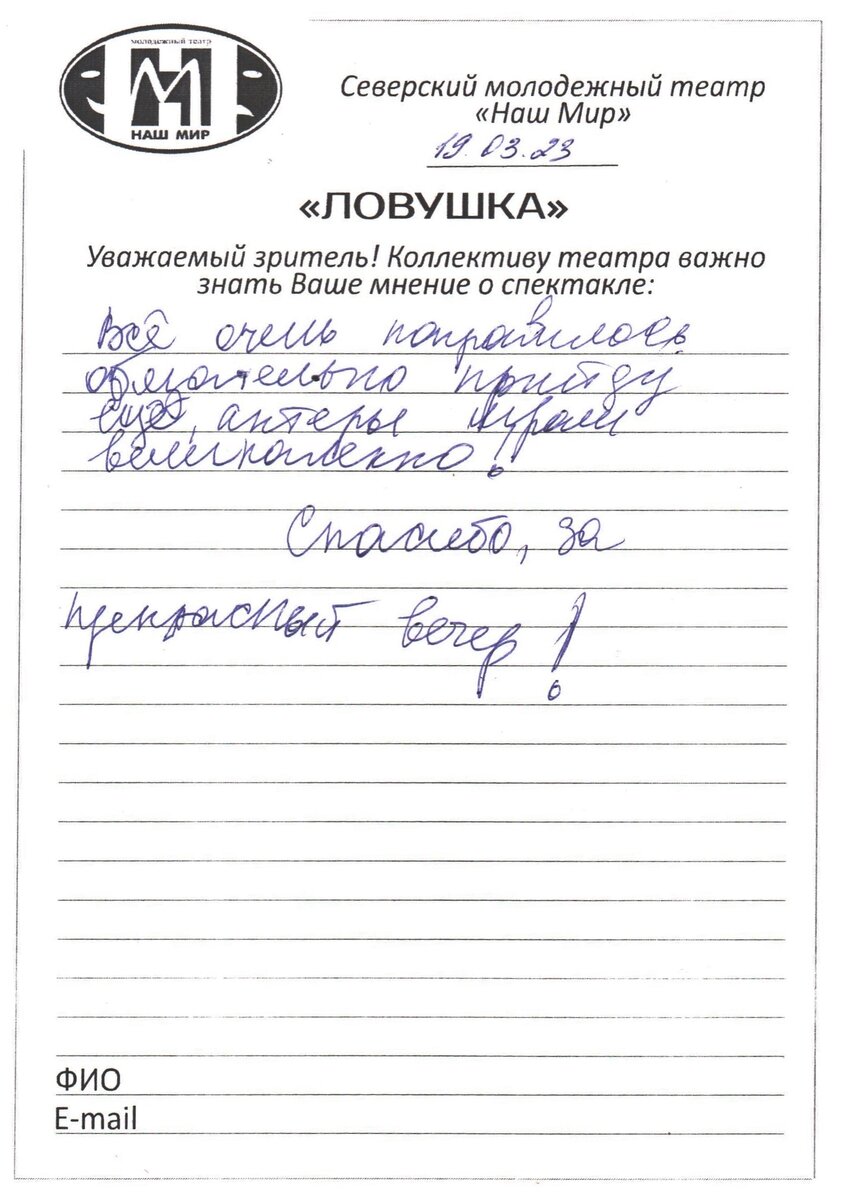 молодежный театр
НАШ МИР
Северский молодежный театр
«Наш Мир»
19.03.23
«ЛОВУШКА»
Уважаемый зритель! Коллективу театра важно
знать Ваше мнение о спектакле:
Всё очень понравилось
обязательно прийду
ещё, актеры играли
великолепно!
Спасибо, за
прекрасный вечер!
ФИО
E-mail